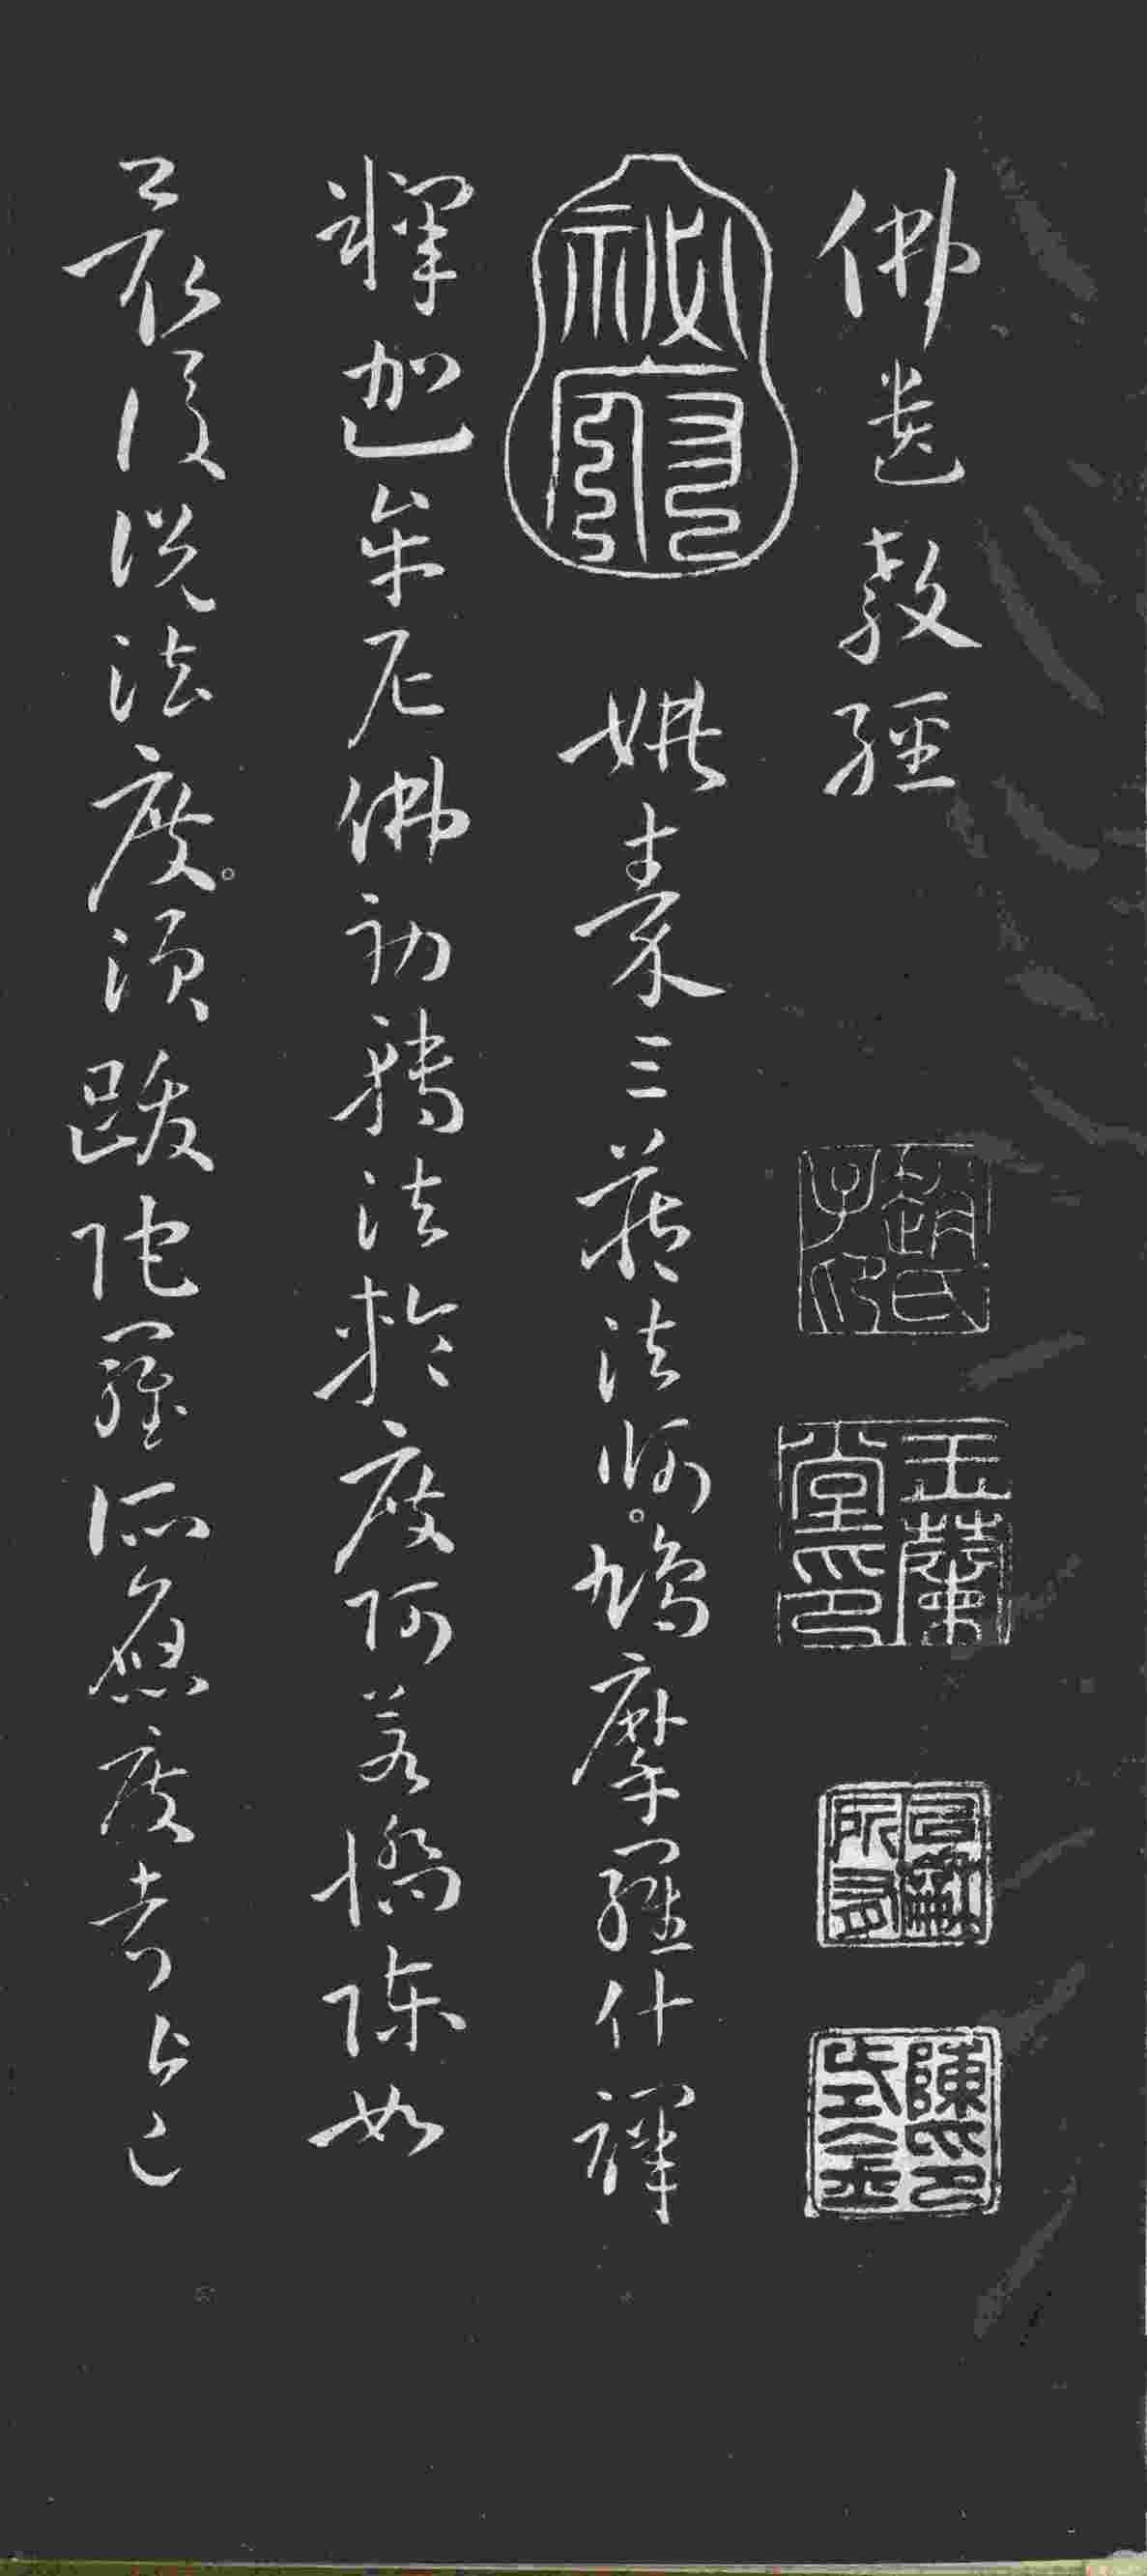 佛遺教經
趙氏子印
玉蘭堂印
姚秦三藏法師。鳩摩羅什譯
釋迦牟尼佛初轉法輪度阿若憍陳如
最後說法度。須跋陀羅所應度者皆已